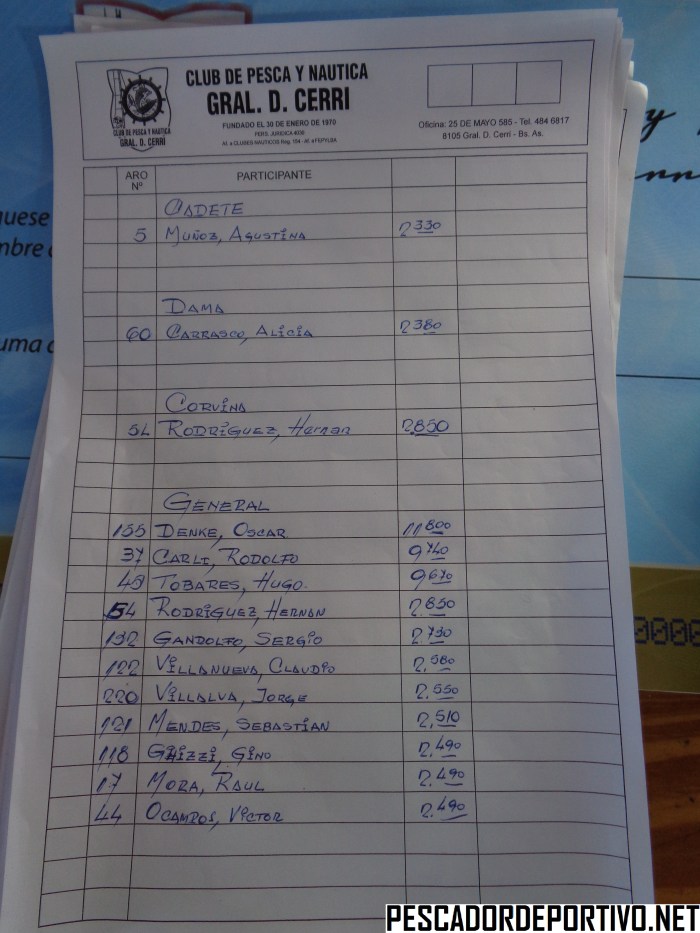 CLUB DE PESCA Y NAUTICA
GRAL. D. CERRI
FUNDADO EL 30 DE ENERO DE 1970
PERS. JURIDICA 4036
Af. a CLUBES NAUTICOS Reg. 104 - Af. a FEPYLBA
CLUB DE PESCA Y NAUTICA
GRAL. D. CERRI
Oficina: 25 DE MAYO 585 - Tel. 484 6817
8105 Gral. D. Cerri - Bs. As.
ARO Nº PARTICIPANTE
CADETE
5 MUÑOZ, AGUSTINA 2.330
DAMA
60 CARRASCO, ALICIA 2.380
CORVINA
54 RODRÍGUEZ, Hernan 2.850
GENERAL
155 DENKE, OSCAR 11.800
37 CARLI, RODOLFO 9.740
49 TOBARES, HUGO. 9.670
54 RODRÍGUEZ, HERNAN 2.850
192 GANDOLFO, SERGIO 2.790
122 VILLANUEVA, CLAUDIO 2.580
220 VILLALVA, JORGE 2.550
121 MENDES, SEBASTIAN 2.510
118 GHIZZI, GINO 2.490
17 MORA, RAUL 2.490
44 OCAMPOS, VICTOR 2.490
PESCADORDEPORTIVO.NET